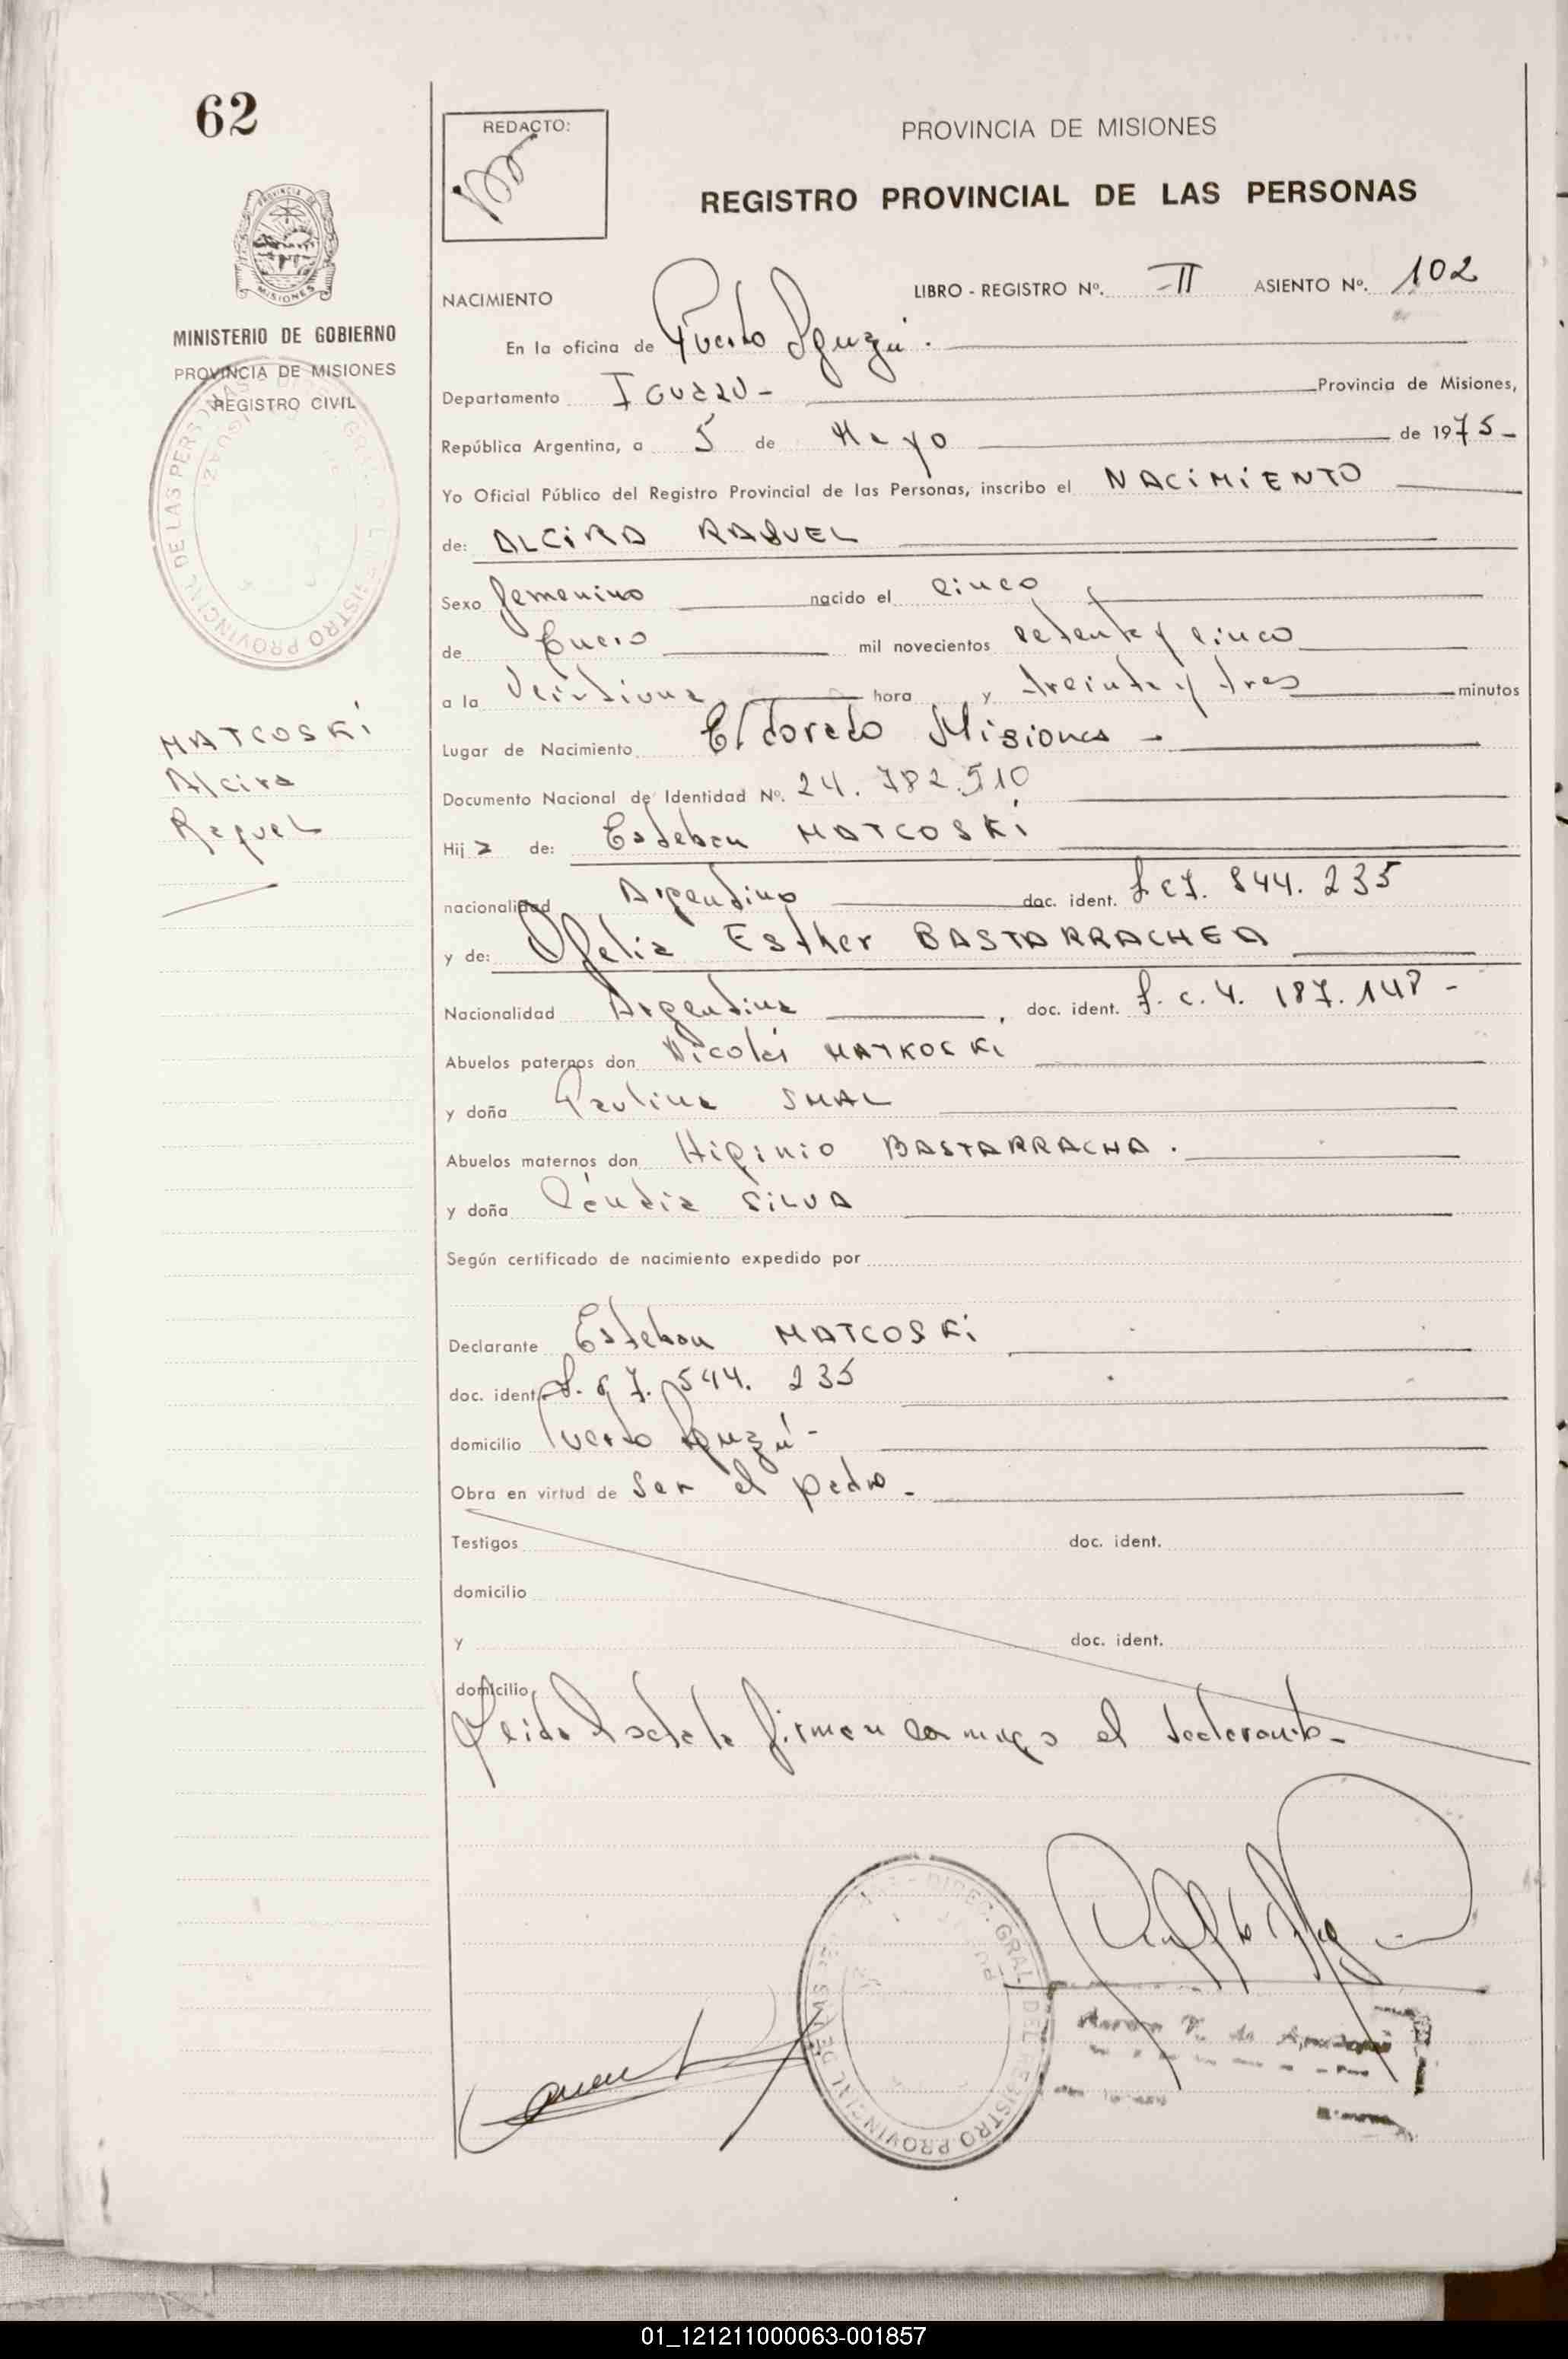 62
REDACTO:
PROVINCIA DE MISIONES
REGISTRO PROVINCIAL DE LAS PERSONAS
PROVINCIA DE MISIONES
MINISTERIO DE GOBIERNO
PROVINCIA DE MISIONES
REGISTRO CIVIL
MATCOSKI
Alcira
Raquel
NACIMIENTO
LIBRO - REGISTRO Nº. II ASIENTO Nº. 102
En la oficina de Puerto Iguazú.
Departamento IGUAZU - Provincia de Misiones,
República Argentina, a 5 de Mayo de 1975-
Yo Oficial Público del Registro Provincial de las Personas, inscribo el NACIMIENTO
de: ALCIRA RAQUEL
Sexo femenino nacido el cinco
de Enero mil novecientos setenta y cinco
a la Veintiuna hora y treinta y tres minutos
Lugar de Nacimiento Eldorado Misiones -
Documento Nacional de Identidad Nº. 24.782.510
Hija de: Esteban MATCOSKI
nacionalidad Argentino doc. ident. 844.235
y de: Ofelia Esther BASTARRACHEA
Nacionalidad Argentina, doc. ident. L.C. 4.187.148-
Abuelos paternos don Nicolás MATKOSKI
y doña Paulina SMAL
Abuelos maternos don Higinio BASTARRACHA.
y doña SILVA
Según certificado de nacimiento expedido por
Declarante Esteban MATCOSKI
doc. ident. 7.544.235
domicilio Puerto Iguazú-
Obra en virtud de ser el padre-
Testigos doc. ident.
domicilio
y doc. ident.
domicilio
Leida el acta la firman conmigo el declarante-
DIREC. GRAL. DEL REGISTRO PROVINCIAL DE LAS PERS
01_121211000063-001857